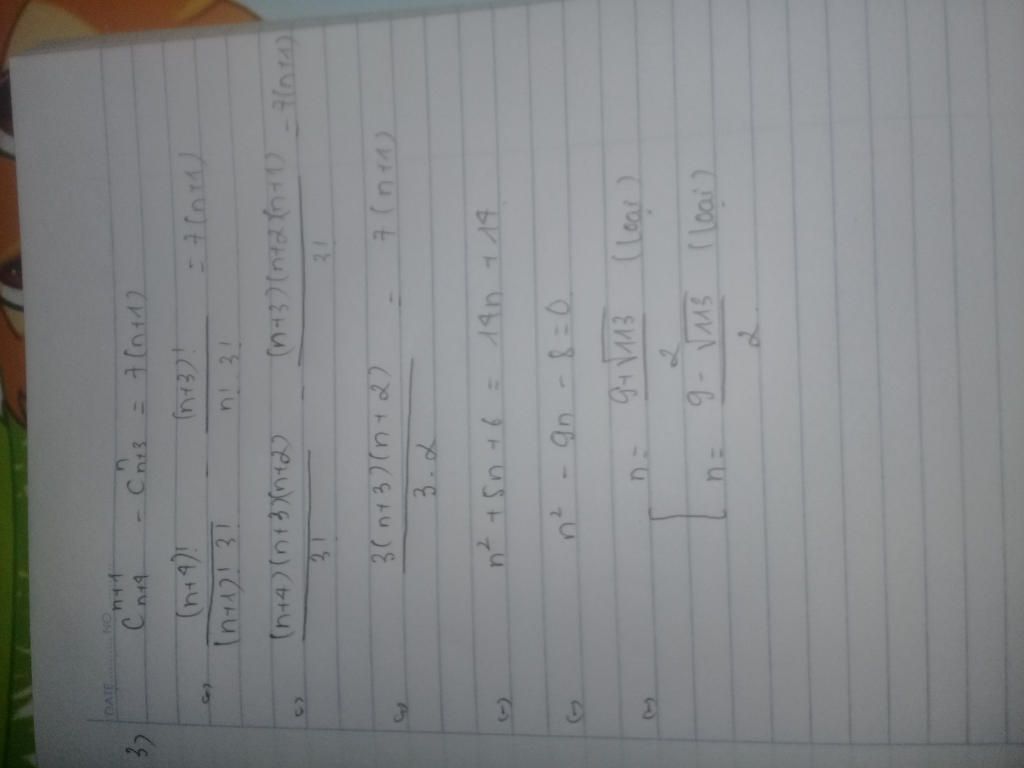 DATE NO
3) C_{n+4}^{n+1} - C_{n+3}^{n} = 7(n+1)
(=) \frac{(n+4)!}{(n+1)! 3!} - \frac{(n+3)!}{n! 3!} = 7(n+1)
(=) \frac{(n+4)(n+3)(n+2)}{3!} - \frac{(n+3)(n+2)(n+1)}{3!} = 7(n+1)
(=) \frac{3(n+3)(n+2)}{3.2} = 7(n+1)
(=) n² + 5n + 6 = 14n + 14
(=) n² - 9n - 8 = 0
(=) [ n = \frac{9+\sqrt{113}}{2} (loại)
n = \frac{9-\sqrt{113}}{2} (loại)